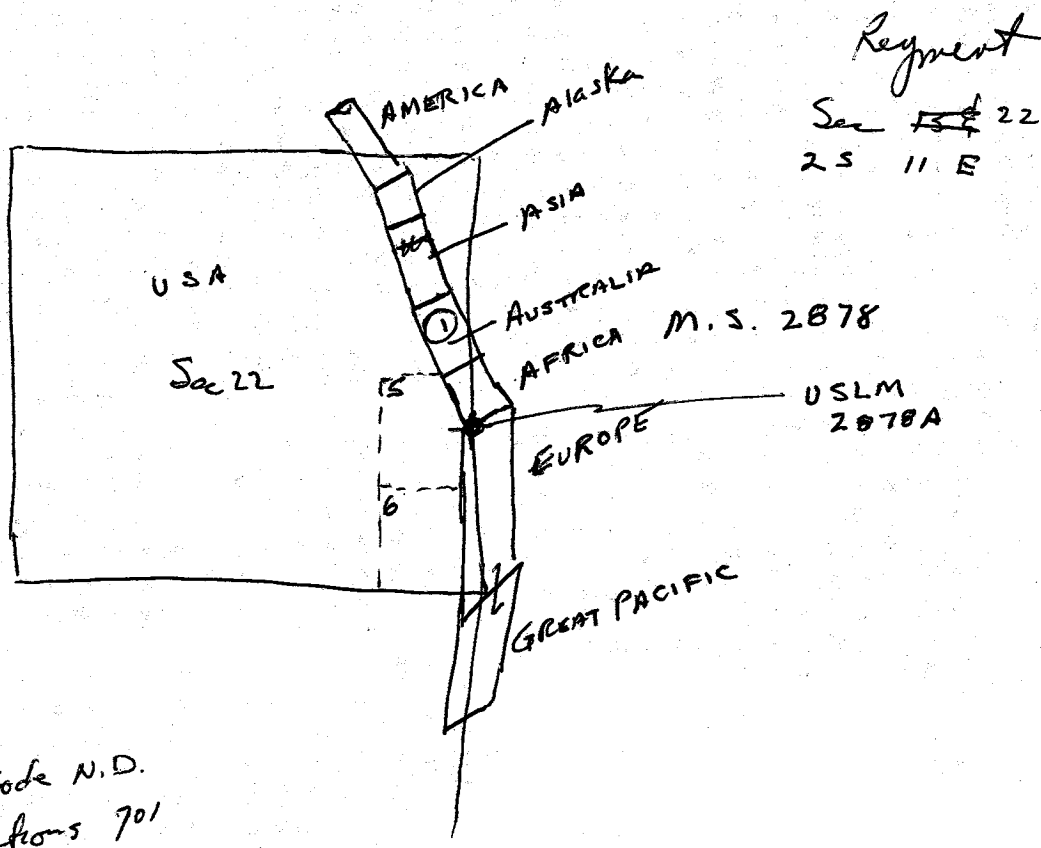 Regment
Sec 22
2 S 11 E
AMERICA
Alaska
ASIA
USA
AUSTRALIA
1
AFRICA M.S. 2878
Sec 22
5
USLM
2878A
EUROPE
6
GREAT PACIFIC
ode N.D.
tions 701